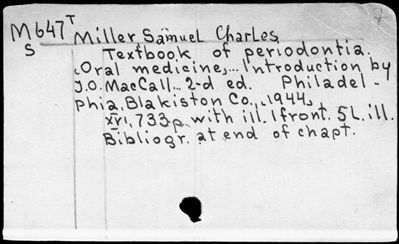 M647T Miller Samuel Charles
S Textbook of periodontia.
(Oral medicine)... Introduction by
J.O. MacCall... 2-d ed. Philadel-
phia, Blakiston Co., [1944]
XVI, 733p. with ill. 1 front. 5 L. ill.
Bibliogr. at end of chapt.